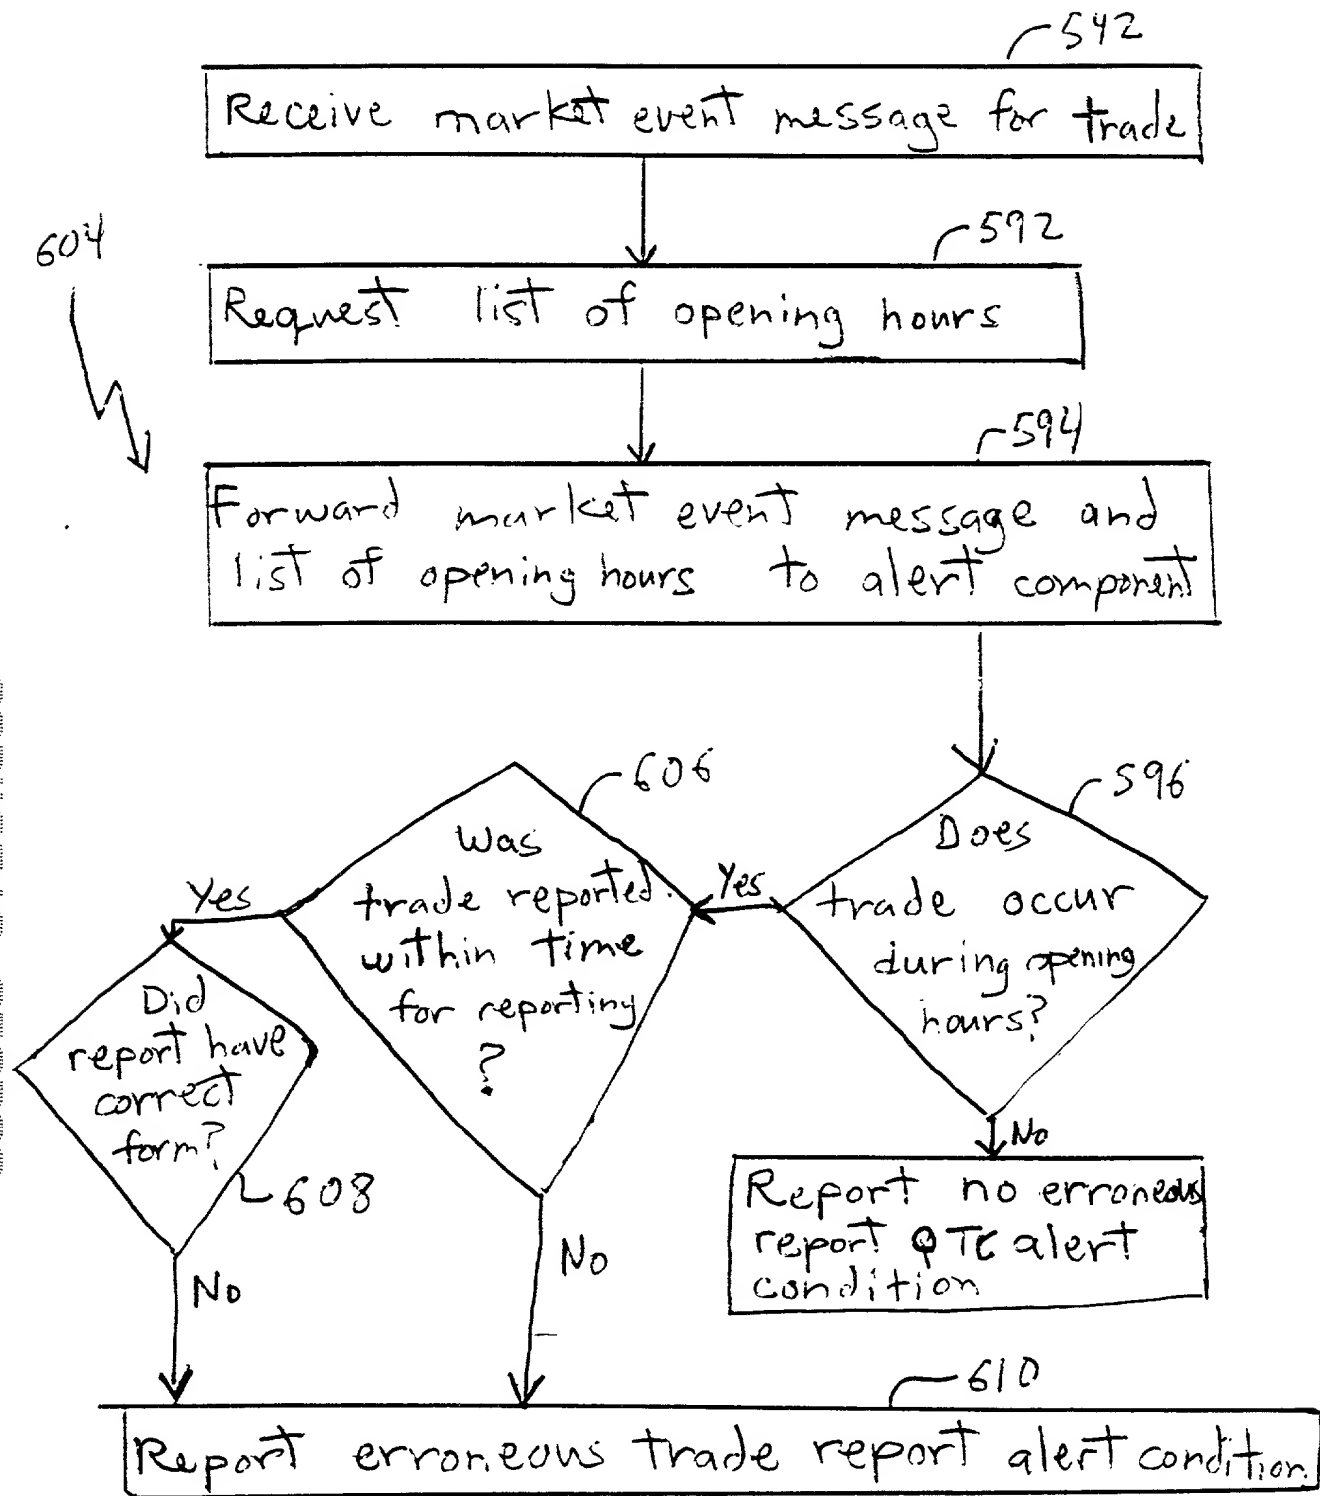 542
Receive market event message for trade
592
604
Request list of opening hours
594
Forward market event message and
list of opening hours to alert component
606
596
Was
trade reported
within time
for reporting
?
Does
trade occur
during opening
hours?
Yes
Yes
Did
report have
correct
form?
608
No
No
No
Report no erroneous
report OTC alert
condition
610
Report erroneous trade report alert condition